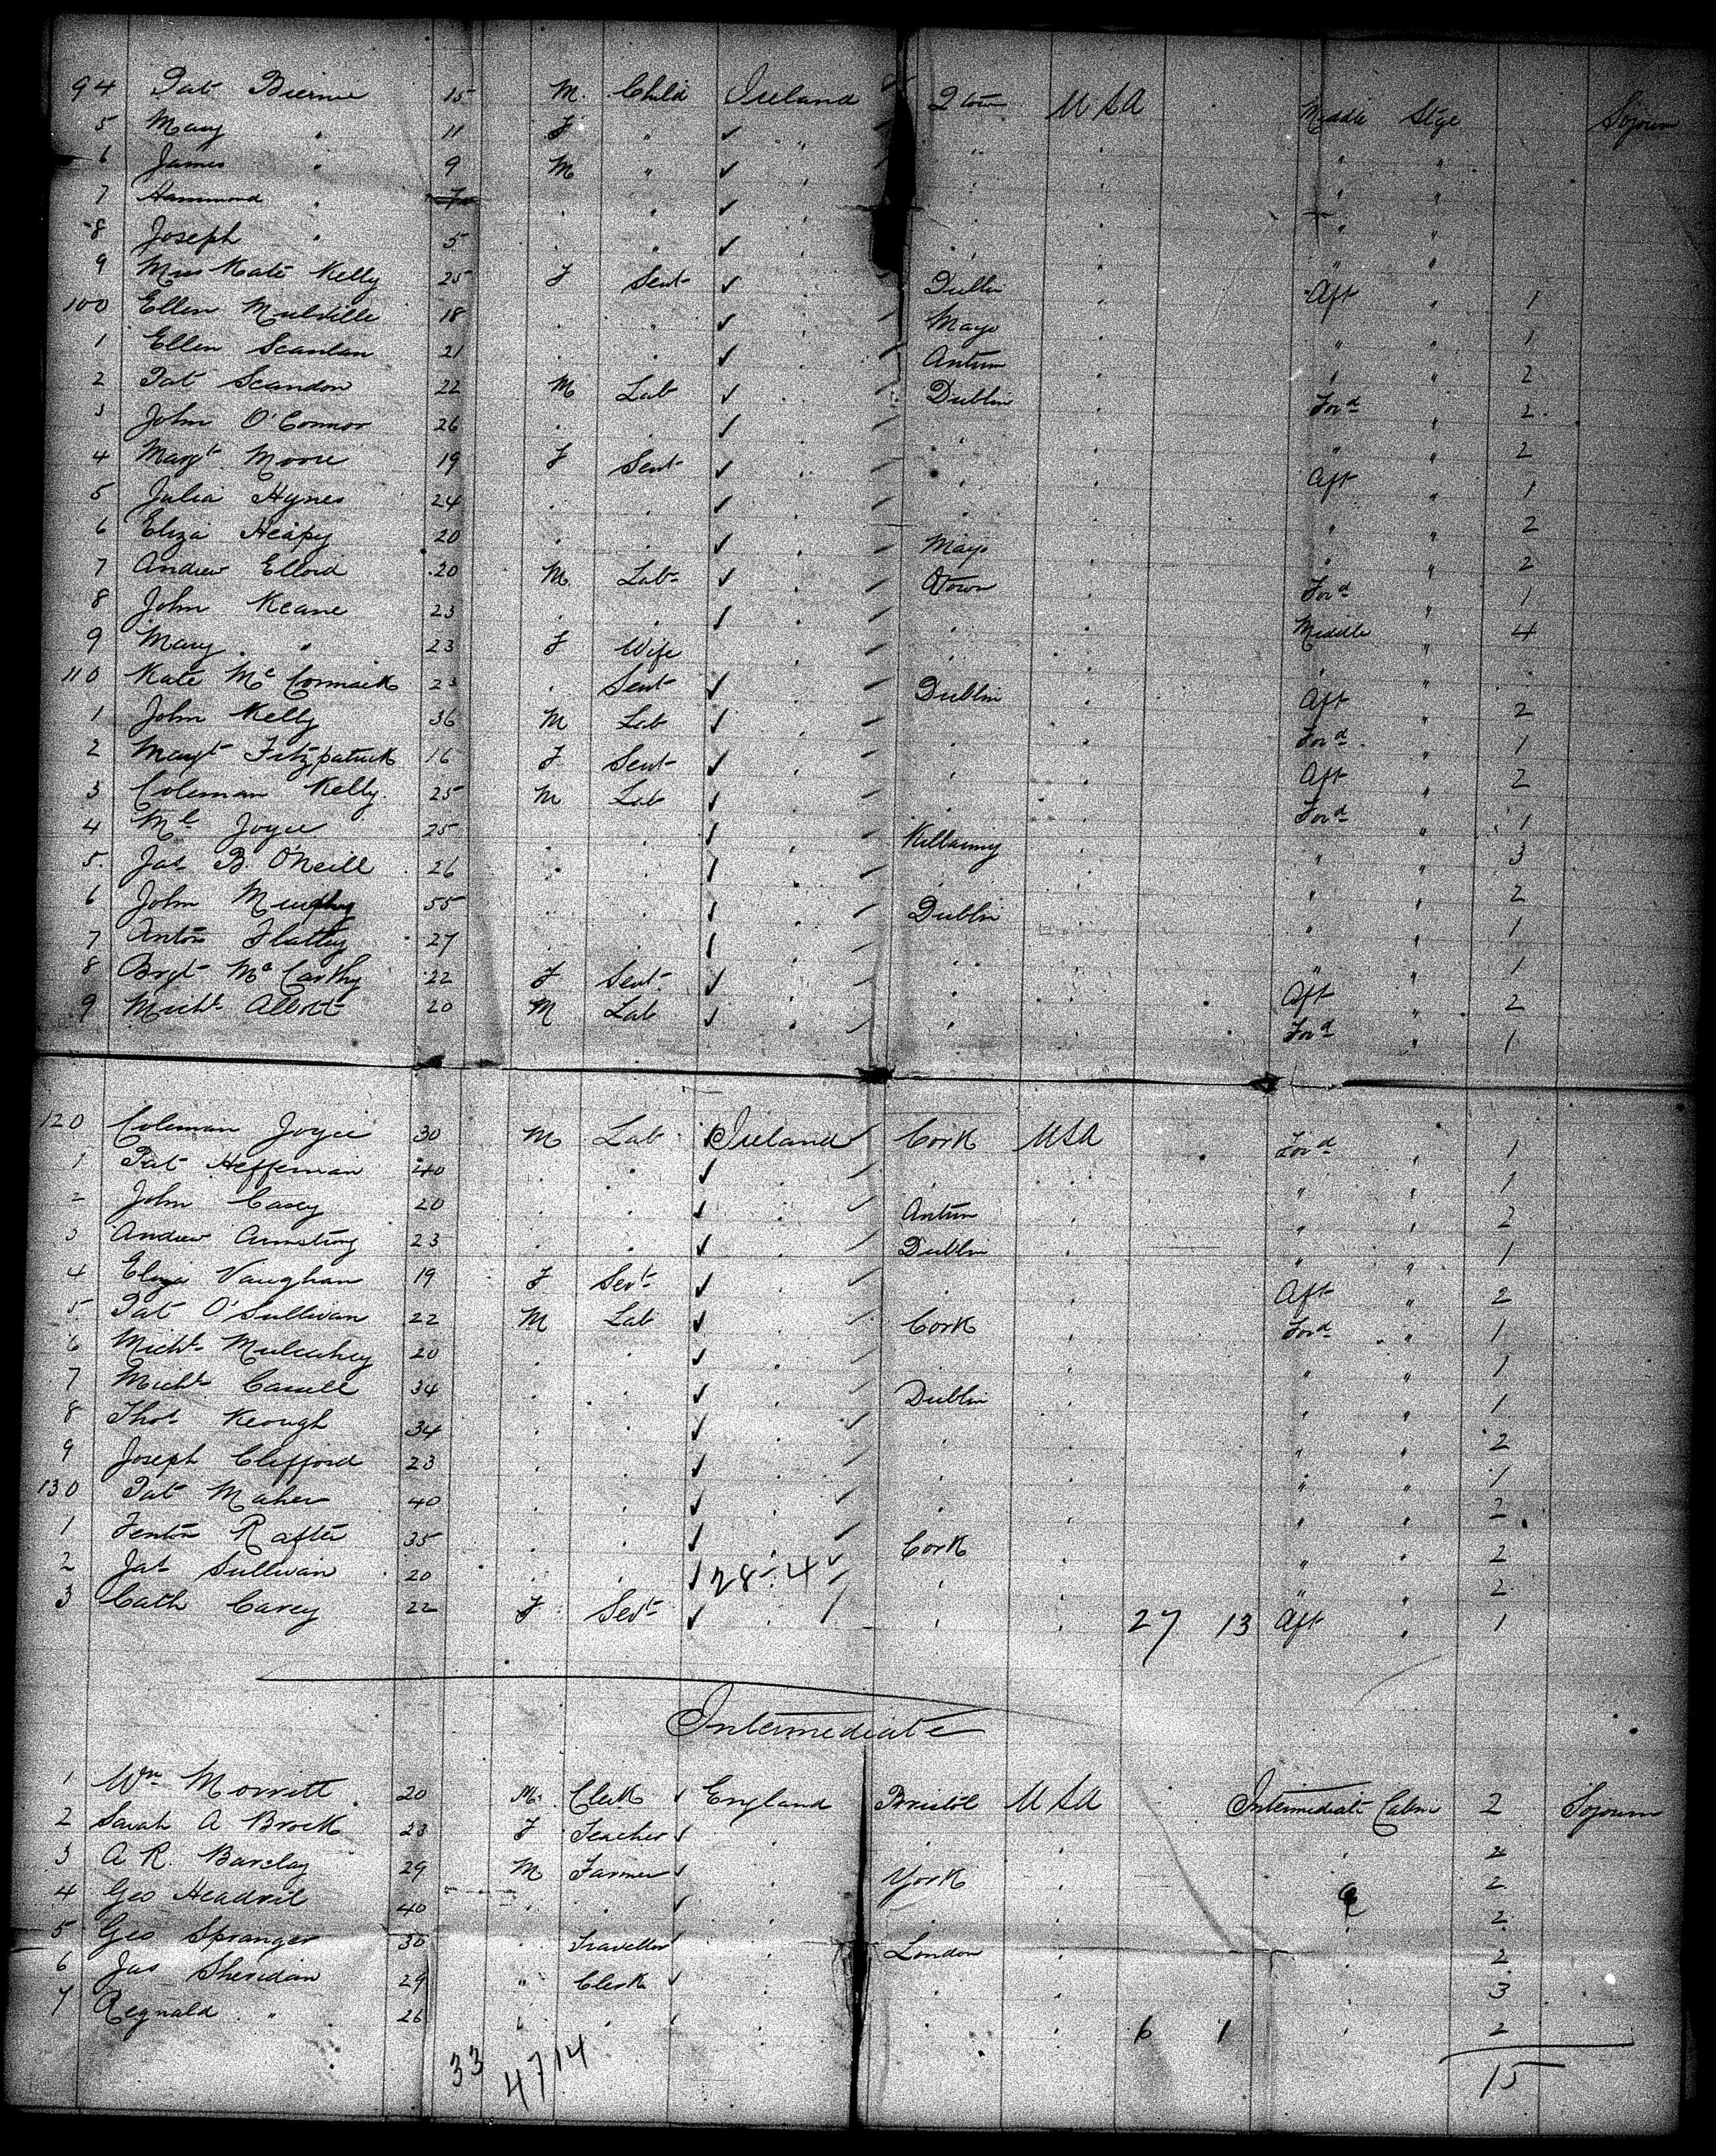 94 Pat Bierne 15 M. Child Ireland Qtown USA Middle Stge Sojourn
5 Mary " 11 F " ✓ " "
6 James " 9 M " ✓ " "
7 Hammond " 7 . " ✓ " "
8 Joseph " 5 . " ✓ " "
9 Mrs Kate Kelly 25 F Sevt ✓ Dublin Aft " 1
100 Ellen Mulville 18 . " ✓ Mayo " " 1
1 Ellen Scanlan 21 . . ✓ Antrim " " 2
2 Pat Scandon 22 M Lab ✓ Dublin Ford " 2
3 John O'Connor 26 . . ✓ . " " 2
4 Margt Moore 19 F Sevt ✓ . Aft " 1
5 Julia Hynes 24 . . ✓ . " " 2
6 Eliza Heapy 20 . . ✓ Mayo " " 2
7 Andrew 20 M. Lab ✓ Qtown Ford " 1
8 John Keane 23 . . ✓ . Middle " 4
9 Mary " 23 F Wife . . "
110 Kate Mc Cormack 23 . Sevt ✓ Dublin Aft " 2
1 John Kelly 36 M Lab ✓ . Ford " 1
2 Margt Fitzpatrick 16 F Sevt ✓ . Aft " 2
3 Coleman Kelly 25 M Lab ✓ . Ford " 1
4 Ml Joyce 25 . . ✓ Killarny " " 3
5 Jas B. O'Neill 26 . . ✓ " " 2
6 John Murphy 55 . . ✓ Dublin " " 1
7 Anton Flatley 27 . . ✓ . " " 1
8 Brgt Mc Carthy 22 F Sevt ✓ . Aft " 2
9 Michl Abbott 20 M Lab ✓ . Ford " 1
120 Coleman Joyce 30 M Lab Ireland Cork USA Ford " 1
1 Pat Heffernan 40 . . ✓ . . " " 1
2 John Casey 20 . . ✓ Antrim . " " 2
3 Andrew Armstrong 23 . . ✓ Dublin " " 1
4 Eliza Vaughan 19 F Sevt ✓ . Aft " 2
5 Pat O'Sullivan 22 M Lab ✓ Cork Ford " 1
6 Michl Mulcahey 20 . . ✓ . " " 1
7 Michl 34 . . ✓ Dublin " " 1
8 Thos Keough 34 . . ✓ . " " 2
9 Joseph Clifford 23 . . ✓ . " " 1
130 Pat Maher 40 . . ✓ . " " 2
1 Fenton Rafter 35 . . ✓ Cork " " 2
2 Jas Sullivan 20 . . ✓ 28 4 . " " 2
3 Cath Carey 22 F Sevt ✓ . . 27 13 Aft " 1
Intermediate
1 Wm Morritt 20 M. Clerk ✓ England Bristol USA Intermediate Cabin 2 Sojourn
2 Sarah A Brock 23 F Teacher ✓ . . . 2
3 A R. Barclay 29 M Farmer ✓ . York . 2
4 Geo 40 . . ✓ . . . 2
5 Geo Spranger 30 . Traveller ✓ . London . . 2
6 Jas Sheridan 29 " Clerk ✓ . . . 3
7 Regnald " 26 . . . . 6 1 . 2
33 47 14 15